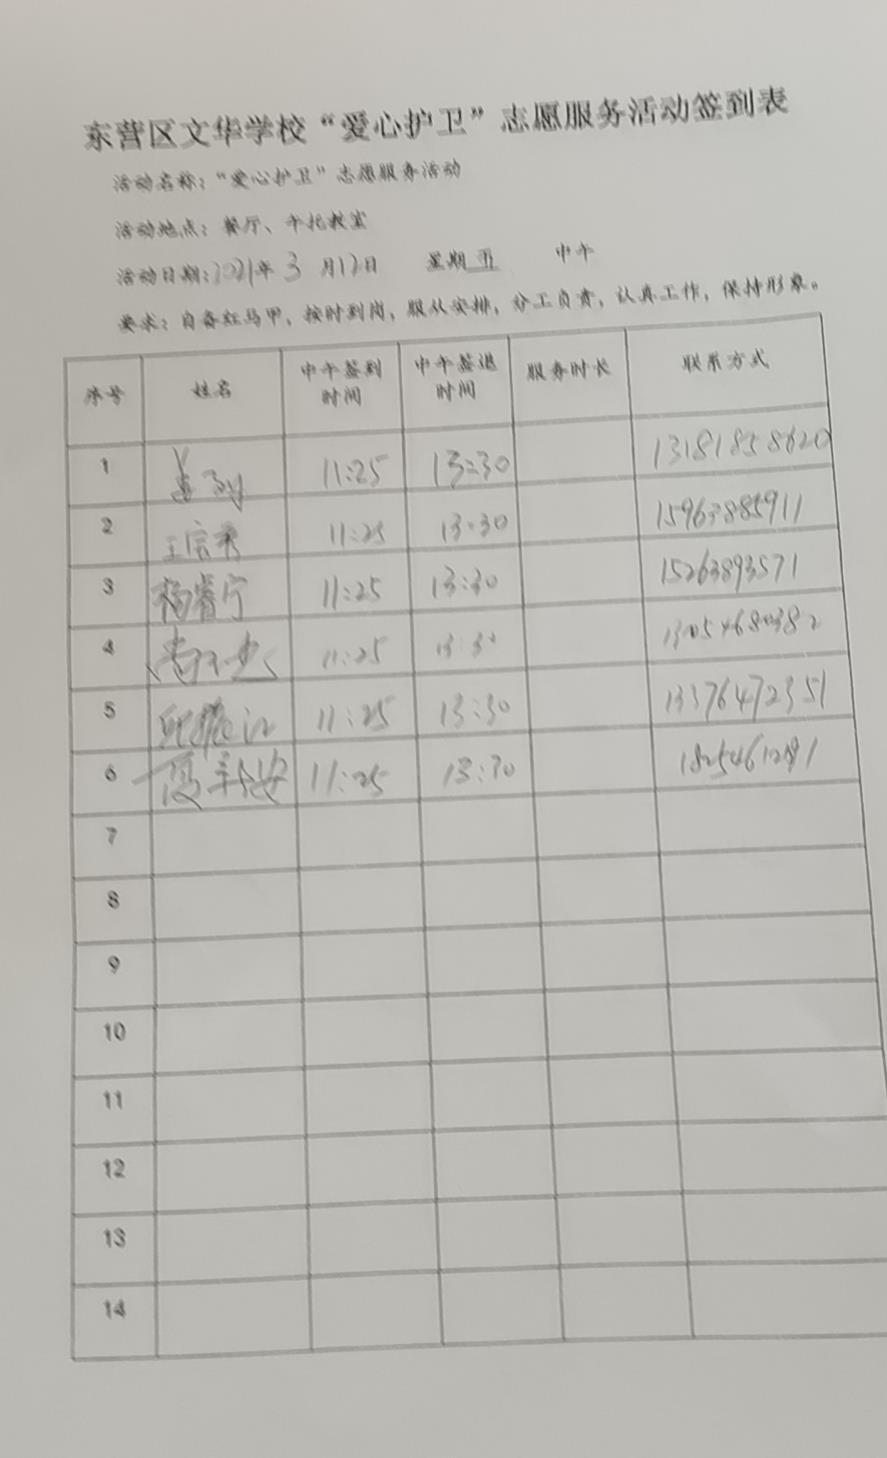 东营区文华学校“爱心护卫”志愿服务活动签到表
活动名称：“爱心护卫”志愿服务活动
活动地点：餐厅、午托教室
活动日期：2021年3月12日 星期五 中午
要求：自备红马甲，按时到岗，服从安排，分工负责，认真工作，保持形象。
序号 姓名 中午签到时间 中午签退时间 服务时长 联系方式
1 11:25 13:30 13181858620
2 11:25 13:30 15963885911
3 杨睿宁 11:25 13:30 15263893571
4 11:25 13:30 13054680382
5 11:25 13:30 13376472351
6 11:25 13:30
7
8
9
10
11
12
13
14